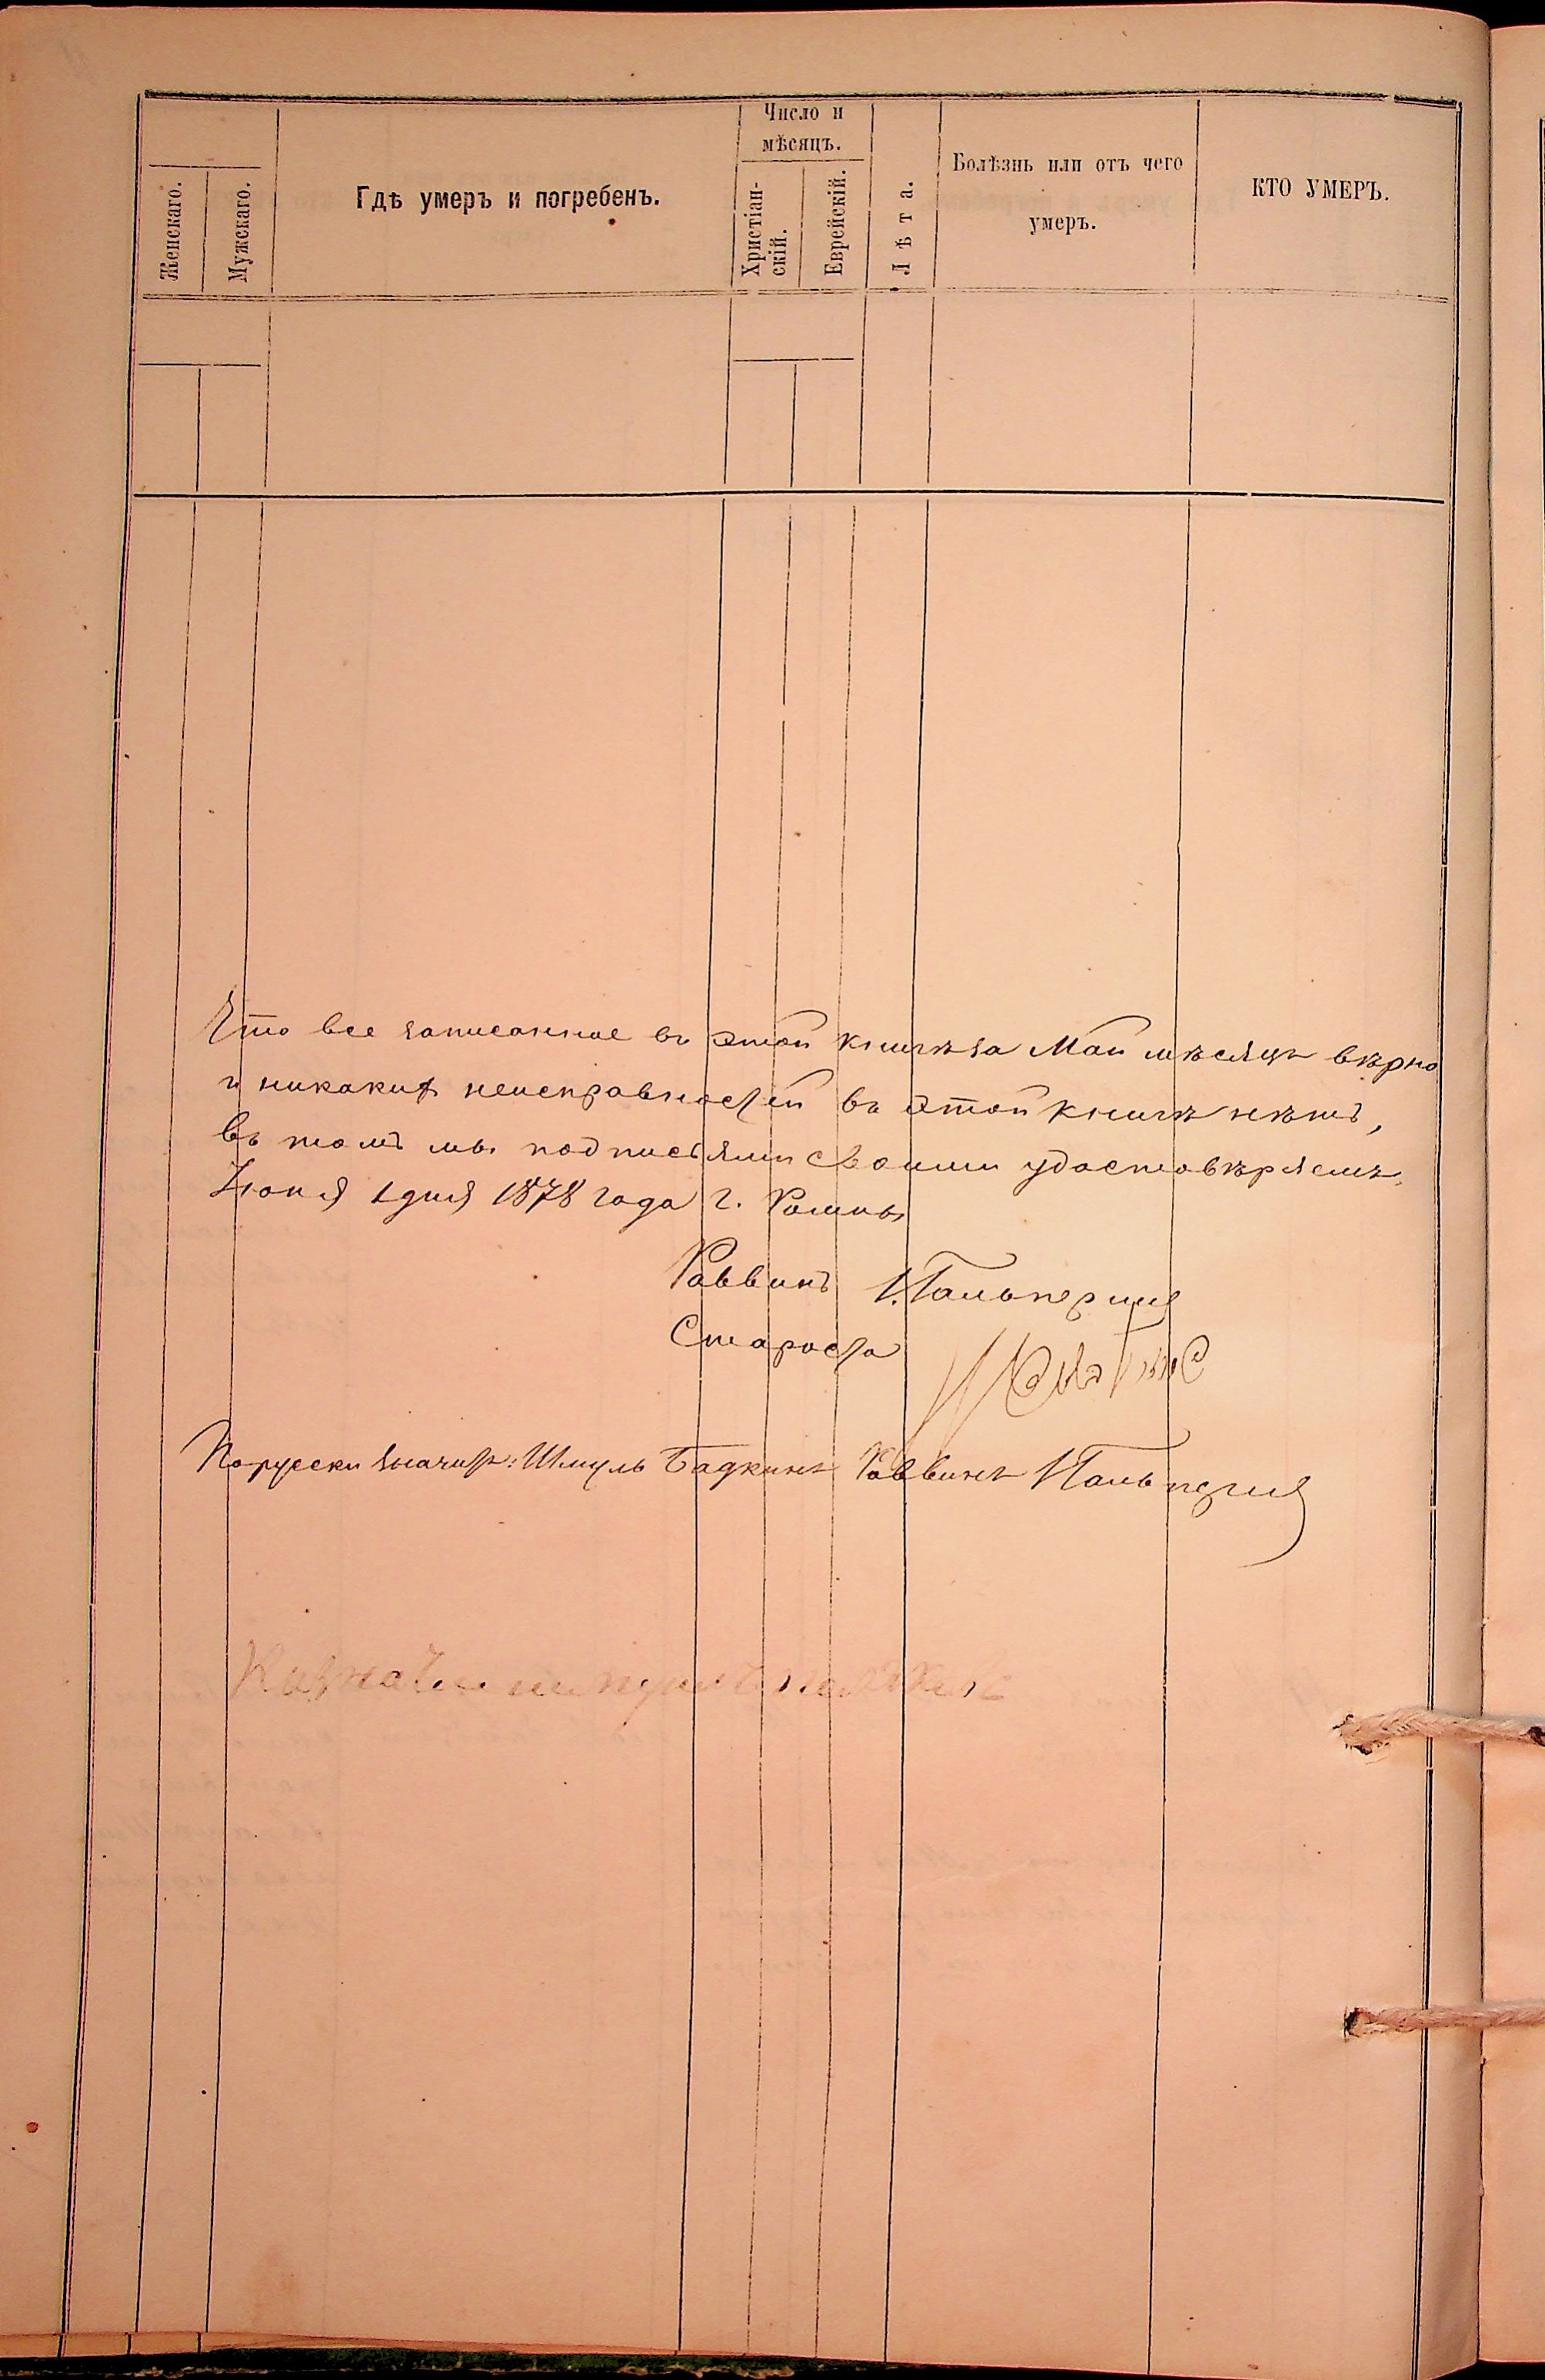 Женскаго.
Мужскаго.
Гдѣ умеръ и погребенъ.
Число и
мѣсяцъ.
Христіан-
скій.
Еврейскій.
Лѣта.
Болѣзнь или отъ чего
умеръ.
КТО УМЕРЪ.
Что все записанное въ этой книгѣ за Май мѣсяцъ вѣрно
и никакихъ неисправностей въ этой книгѣ нѣтъ,
въ томъ мы подписями своими удостовѣряемъ.
Іюня 1 дня 1878 года г. Ромны
Раввинъ И. Гальперинъ
Староста
По русски значитъ: Шмуль Бадкинъ Раввинъ И Гальперинъ
Казначей